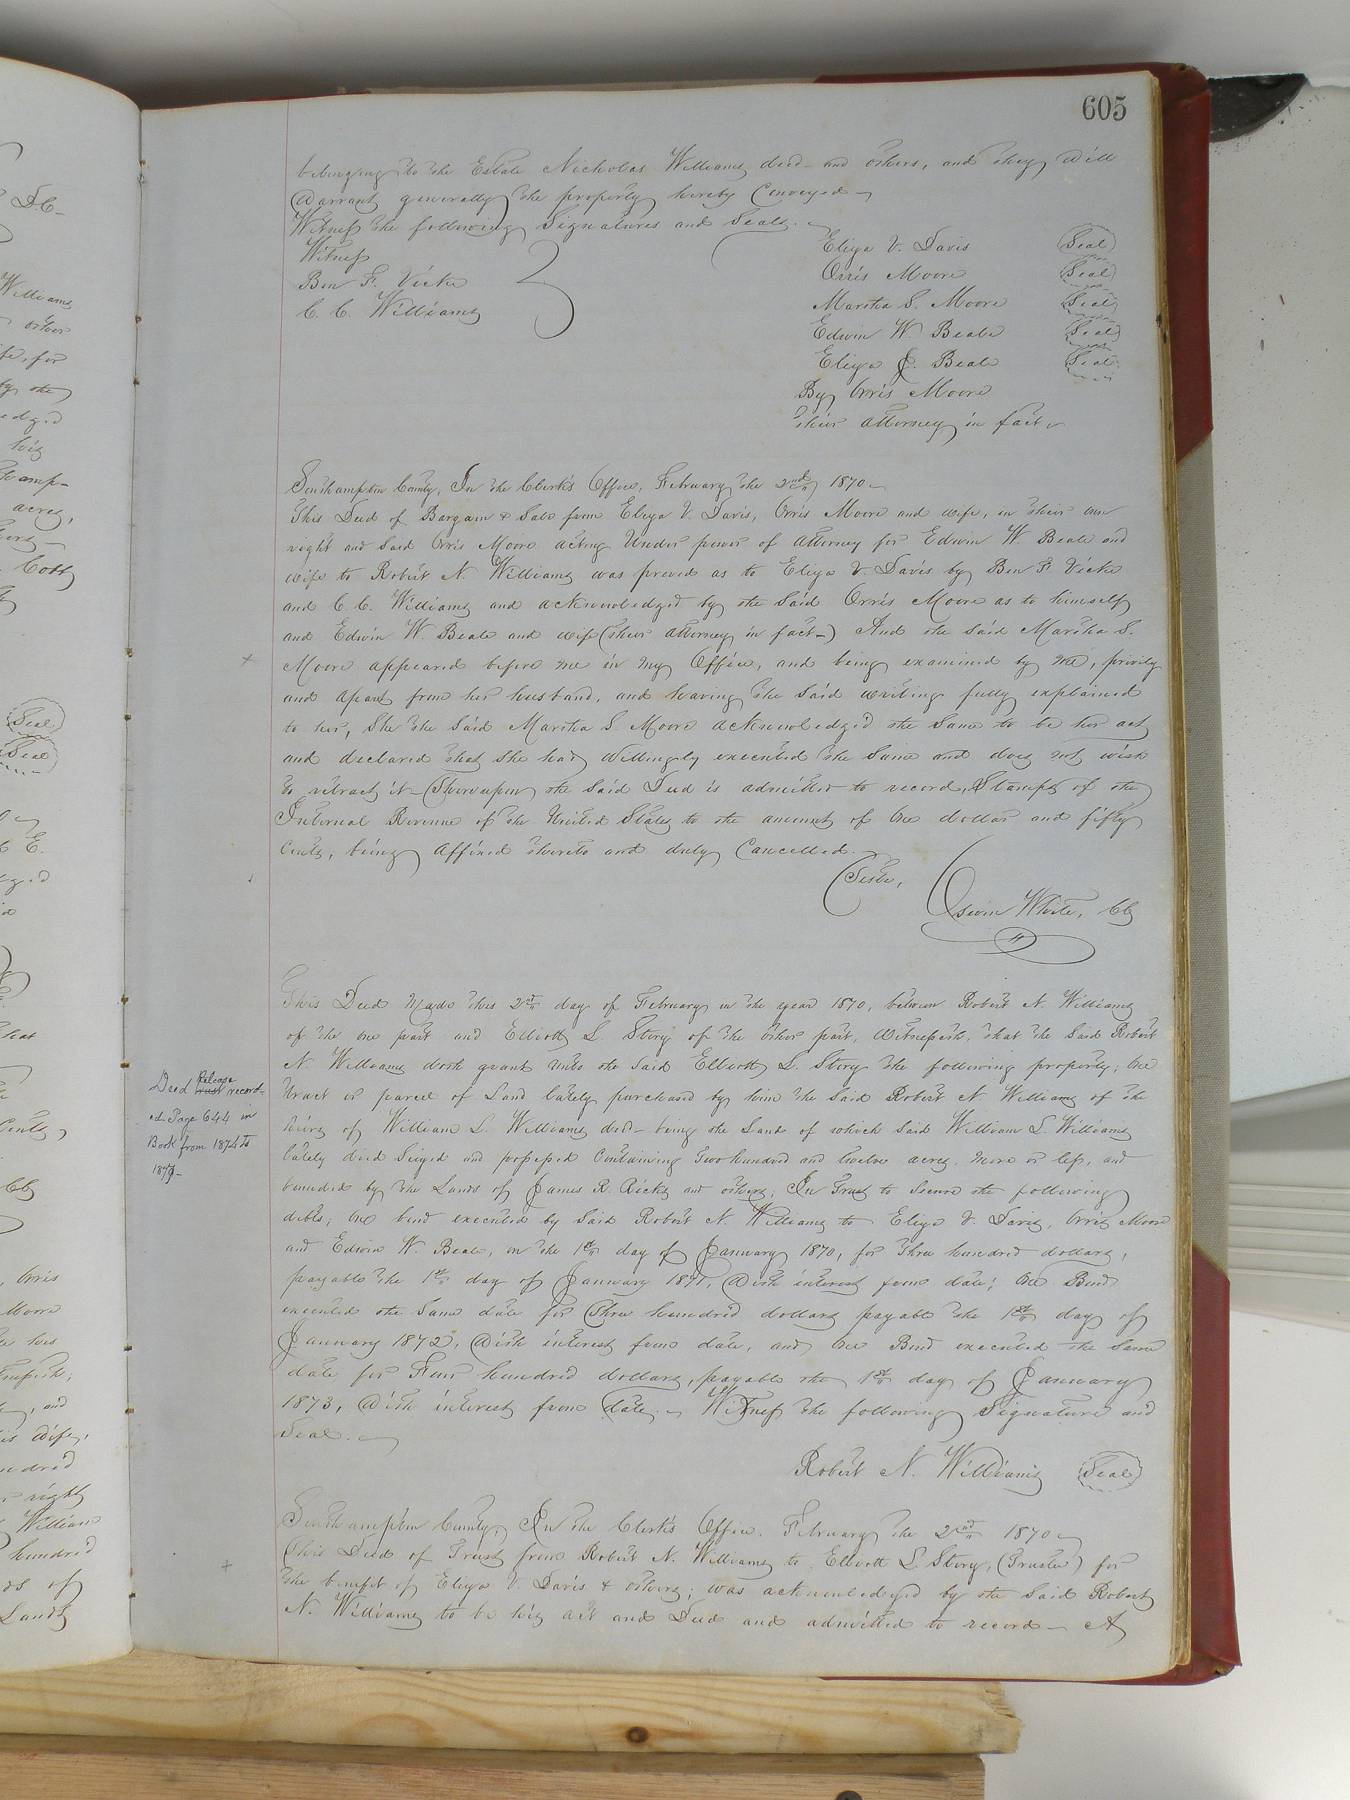 605
belonging to the Estate Nicholas Williams decd - and others, and they will
Warrant generally the property hereby Conveyed -
Witness the following Signatures and Seals. -
Witness
Ben F. Vicke
C. C. Williams
Eliza V. Davis (Seal)
Orris Moore (Seal)
Martha S. Moore (Seal)
Edwin W. Beale (Seal)
Eliza J. Beale (Seal)
By Orris Moore
their attorney in fact -
Southampton County, In the Clerk's Office, February the 2nd 1870 -
This Deed of Bargain & Sale from Eliza V. Davis, Orris Moore and wife, in their own
right and Said Orris Moore acting Under power of attorney for Edwin W. Beale and
wife to Robert N. Williams was proved as to Eliza V. Davis by Ben F Vicke
and C. C. Williams and acknowledged by the Said Orris Moore as to himself
and Edwin W. Beale and wife (their attorney in fact -) And the said Martha S.
Moore appeared before me in my Office, and being examined by me, privily
and apart from her husband, and having the Said writing fully explained
to her, She the Said Martha S. Moore acknowledged the Same to be her act
and declared that She had Willingly executed the Same and does not wish
to retract it - Thereupon the Said Deed is admitted to record, Stamps of the
Internal Revenue of the United States to the amount of One dollar and fifty
Cents, being Affixed thereto and duly Cancelled. -
Teste,
Edwin White, CC
This Deed Made this 2nd day of February in the year 1870, between Robert N. Williams
of the one part and Elliott L. Story of the other part, Witnesseth, that the Said Robert
N. Williams doth grant unto the Said Elliott L. Story the following property; One
tract or parcel of Land lately purchased by him the Said Robert N. Williams of the
heirs of William L. Williams decd - being the Land of which Said William L. Williams
lately died Seized and possessed Containing Two hundred and twelve acres, more or less, and
bounded by the Lands of James R. Ricks and others; In Trust to Secure the following
debts; One bond executed by Said Robert N. Williams to Eliza V. Davis, Orris Moore
and Edwin W. Beale, on the 1st day of January 1870, for Three hundred dollars,
payable the 1st day of January 1871, With interest from date; One Bond
executed the Same date for Three hundred dollars payable the 1st day of
January 1872, With interest from date, and One Bond executed the Same
date for Four hundred dollars, payable the 1st day of January
1873, With interest from date. - Witness the following Signature and
Seal. -
Robert N. Williams (Seal)
Deed Release trust record-
ed Page 644 in
Book from 1874 to
1877 -
Southampton County, In the Clerk's Office, February the 2nd 1870 -
This Deed of Trust from Robert N. Williams to Elliott L. Story, (Trustee) for
the benefit of Eliza V. Davis & others; was acknowledged by the Said Robert
N. Williams to be his act and Deed and admitted to record - A